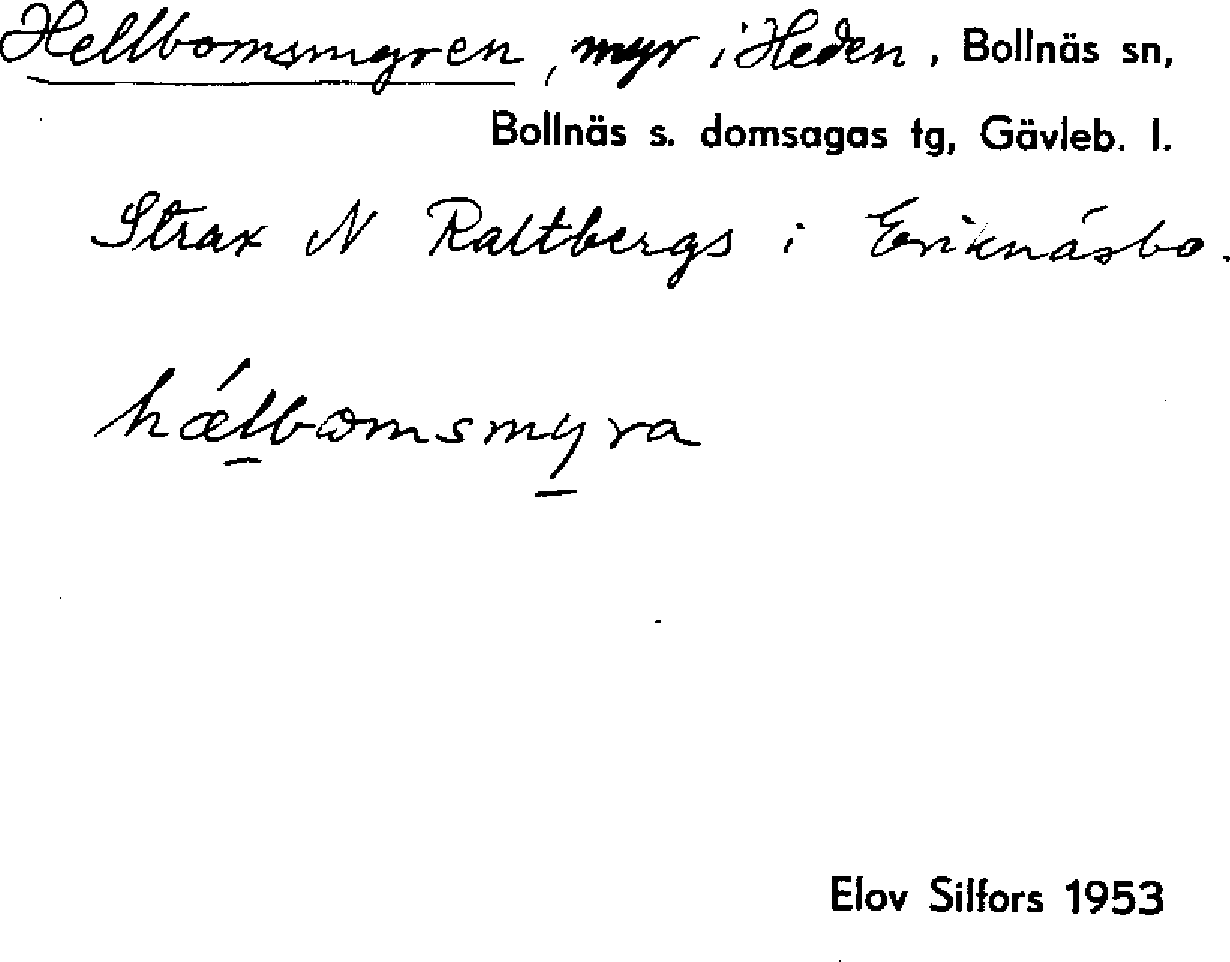 Hellbomsmyren, myr i Heden, Bollnäs sn,
Bollnäs s. domsagas tg, Gävleb. l.
Strax N Raltbergs i Eriknäsbo.
hælbomsmyra
Elov Silfors 1953